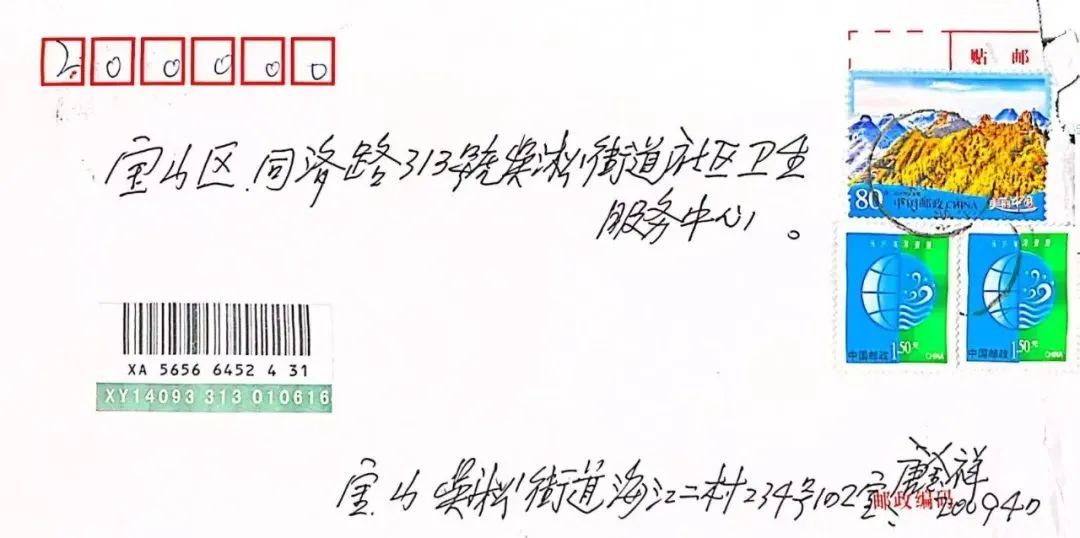 200000
贴 邮
宝山区.同济路313號吴淞街道社区卫生
服务中心。
80 中国邮政 CHINA
中国邮政 1.50元 CHINA
中国邮政 1.50元 CHINA
XA 5656 6452 4 31
XY14093 313 010616
宝山吴淞街道海江二村234号102室 祥
邮政编码 200940